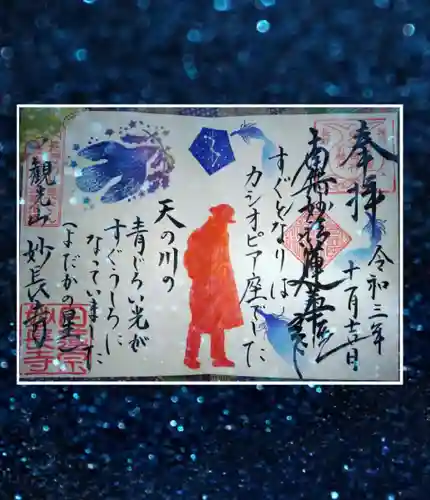 奉拝
令和三年
南無妙法蓮華経
すぐとなりは
カシオピア座でした
天の川の
青じろい光が
すぐうしろに
なっていました
（よだかの星）
観光山
妙長寺